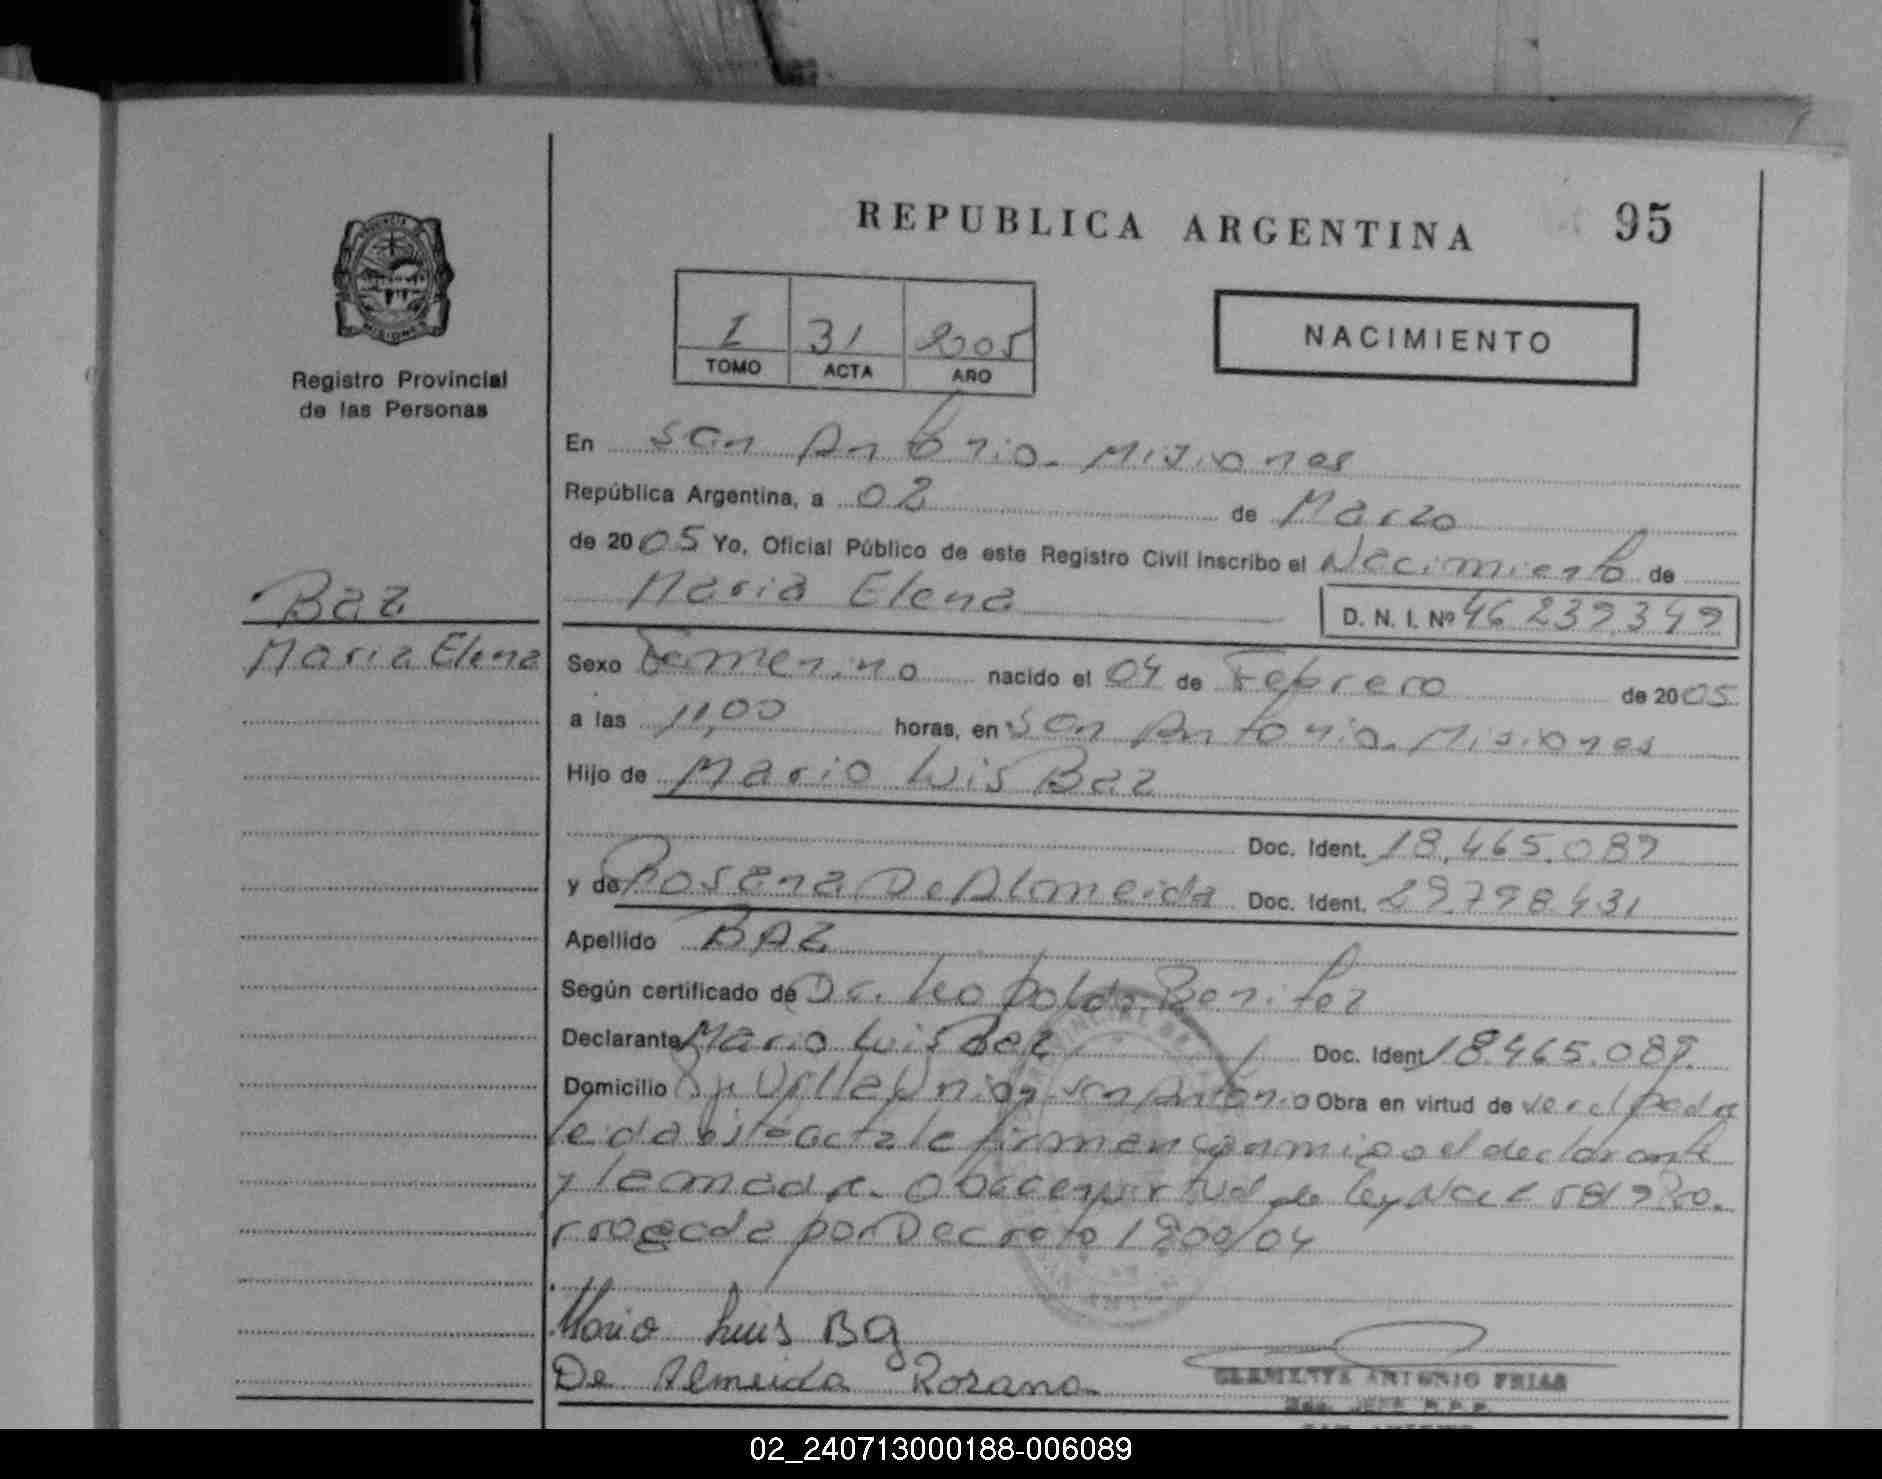 REPUBLICA ARGENTINA 95
I 31 2005
TOMO ACTA AÑO
NACIMIENTO
PROVINCIA DE
MISIONES
Registro Provincial
de las Personas
En San Antonio - Misiones
República Argentina, a 02 de Marzo
de 2005 Yo, Oficial Público de este Registro Civil inscribo el Nacimiento de
Maria Elena D. N. I. Nº 46.239.349
Baz
Maria Elena
Sexo Femenino nacido el 04 de Febrero de 2005
a las 11,00 horas, en San Antonio - Misiones
Hijo de Mario Luis Baz
Doc. Ident. 18.465.089
y de Rosana De Almeida Doc. Ident. 29.798.431
Apellido BAZ
Según certificado de Dr. Leopoldo Benitez
Declarante Mario Luis Baz Doc. Ident. 18.465.089
Domicilio Villa Union San Antonio Obra en virtud de ser el padre
leida esta acta la firman conmigo el declarante
y la madre. Obra en virtud de ley Nac 25819 Pro-
rrogada por Decreto 1800/04
Mario Luis Baz
De Almeida Rozana
CLEMENTE ANTONIO FRIAS
02_240713000188-006089